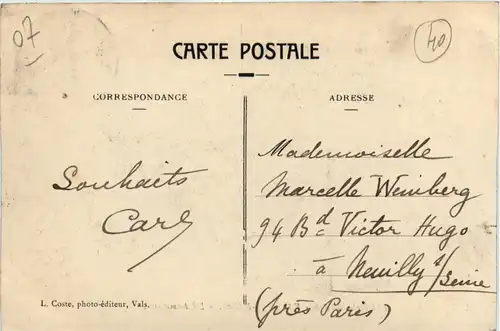 07
40
CARTE POSTALE
CORRESPONDANCE
ADRESSE
Souhaits
Carl
Mademoiselle
Marcelle Weinberg
94 Bd Victor Hugo
à Neuilly s/Seine
(près Paris)
L. Coste, photo-éditeur, Vals.